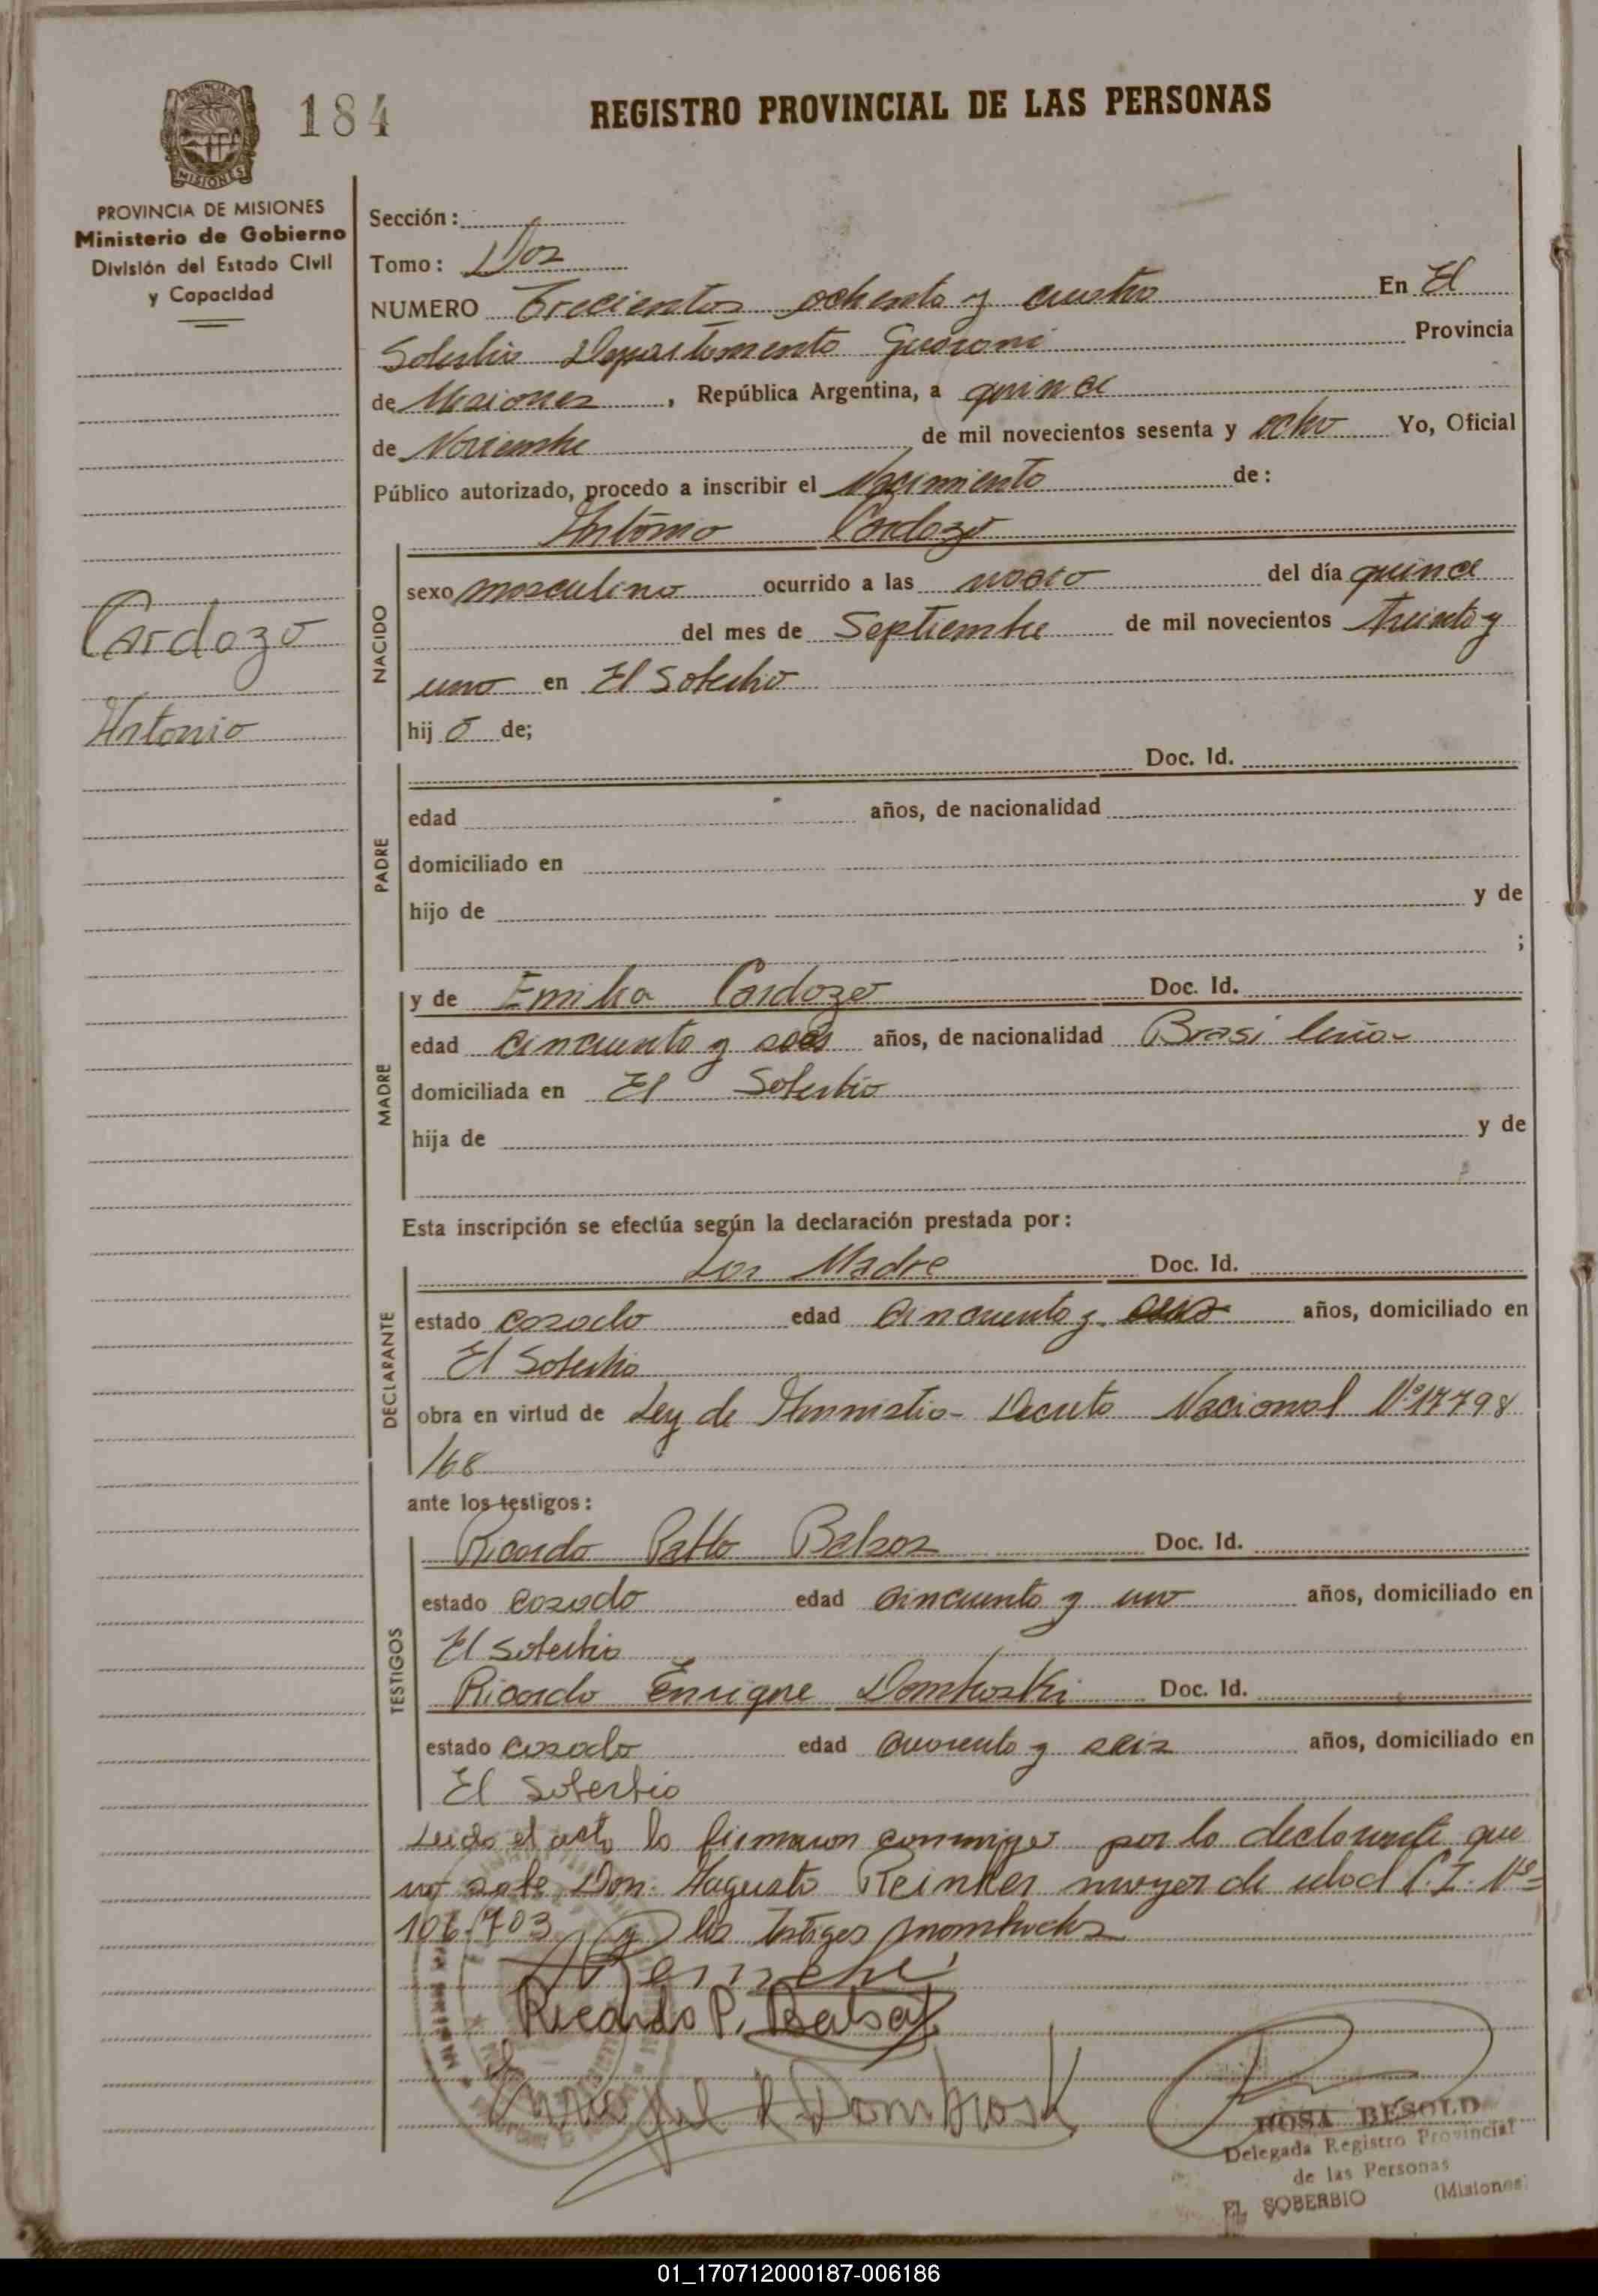 184
REGISTRO PROVINCIAL DE LAS PERSONAS
PROVINCIA DE MISIONES
Ministerio de Gobierno
División del Estado Civil
y Capacidad
Cardozo
Antonio
Sección:
Tomo: Dos
NUMERO Trecientos ochenta y cuatro En El
Soberbio Departamento Guarani Provincia
de Misiones, República Argentina, a quince
de Noviembre de mil novecientos sesenta y ocho Yo, Oficial
Público autorizado, procedo a inscribir el Nacimiento de:
Antonio Cardozo
NACIDO
sexo masculino ocurrido a las del día quince
del mes de Septiembre de mil novecientos treinta y
uno en El Soberbio
hij o de;
PADRE
Doc. Id.
edad años, de nacionalidad
domiciliado en
hijo de y de
;
MADRE
y de Emilia Cardozo Doc. Id.
edad cincuenta y años, de nacionalidad Brasileña
domiciliada en El Soberbio
hija de y de
Esta inscripción se efectúa según la declaración prestada por:
DECLARANTE
La Madre Doc. Id.
estado casada edad cincuenta y años, domiciliado en
El Soberbio
obra en virtud de Ley de Amnistia- Decreto Nacional Nº 17798
/68
ante los testigos:
TESTIGOS
Ricardo Pablo Balsas Doc. Id.
estado casado edad cincuenta y uno años, domiciliado en
El Soberbio
Ricardo Enrique Domboski Doc. Id.
estado casado edad cuarenta y seis años, domiciliado en
El Soberbio
Leida el acta la firmaron conmigo por la declarante que
no sabe Don Augusto Reinker mayor de edad C.I. Nº
106.703 y los testigos nombrados
Ricardo P. Balsas
ROSA BESOLD
Delegada Registro Provincial
de las Personas
EL SOBERBIO (Misiones)
01_170712000187-006186